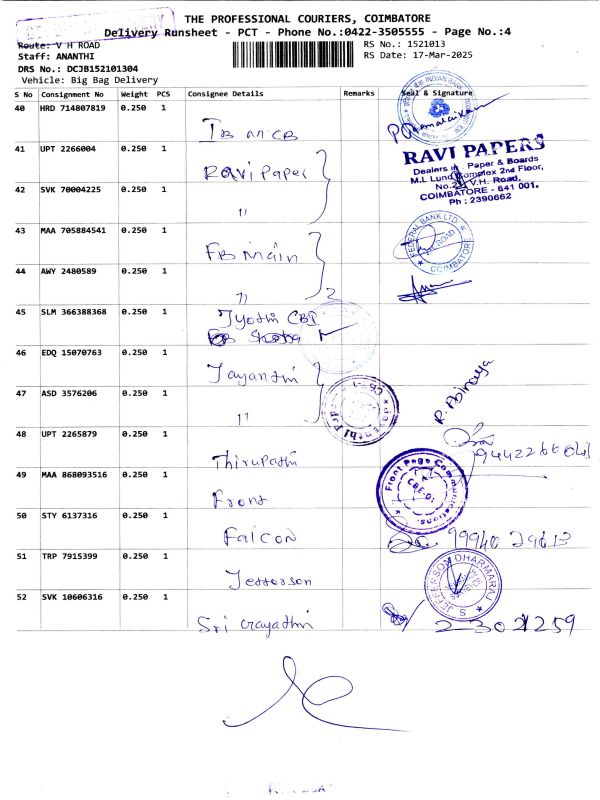 THE PROFESSIONAL COURIERS, COIMBATORE
Delivery Runsheet - PCT - Phone No.:0422-3505555 - Page No.:4
Route: V H ROAD
RS No.: 1521013
Staff: ANANTHI
RS Date: 17-Mar-2025
DRS No.: DCJB152101304
Vehicle: Big Bag Delivery
S No Consignment No Weight PCS Consignee Details Remarks Seal & Signature
40 HRD 714807819 0.250 1
41 UPT 2266004 0.250 1
Ravi Paper
RAVI PAPERS
Dealers in Paper & Boards
M.L Lund Complex 2nd Floor,
V.H. Road,
COIMBATORE - 641 001.
Ph : 2390662
42 SVK 70004225 0.250 1
"
43 MAA 705884541 0.250 1
FB Main
FEDERAL BANK LTD.
COIMBATORE
44 AWY 2480589 0.250 1
"
45 SLM 366388368 0.250 1
Jyothi CBI
46 EDQ 15070763 0.250 1
Jayanthi
47 ASD 3576206 0.250 1
"
R. Abinaya
48 UPT 2265879 0.250 1
Thirupathi
49 MAA 868093516 0.250 1
Front
Front Page Communications
CBE-01
50 STY 6137316 0.250 1
Falcon
51 TRP 7915399 0.250 1
Jefferson
S. JEFFERSON DHARMARAJ
52 SVK 10606316 0.250 1
Sri Gayathri